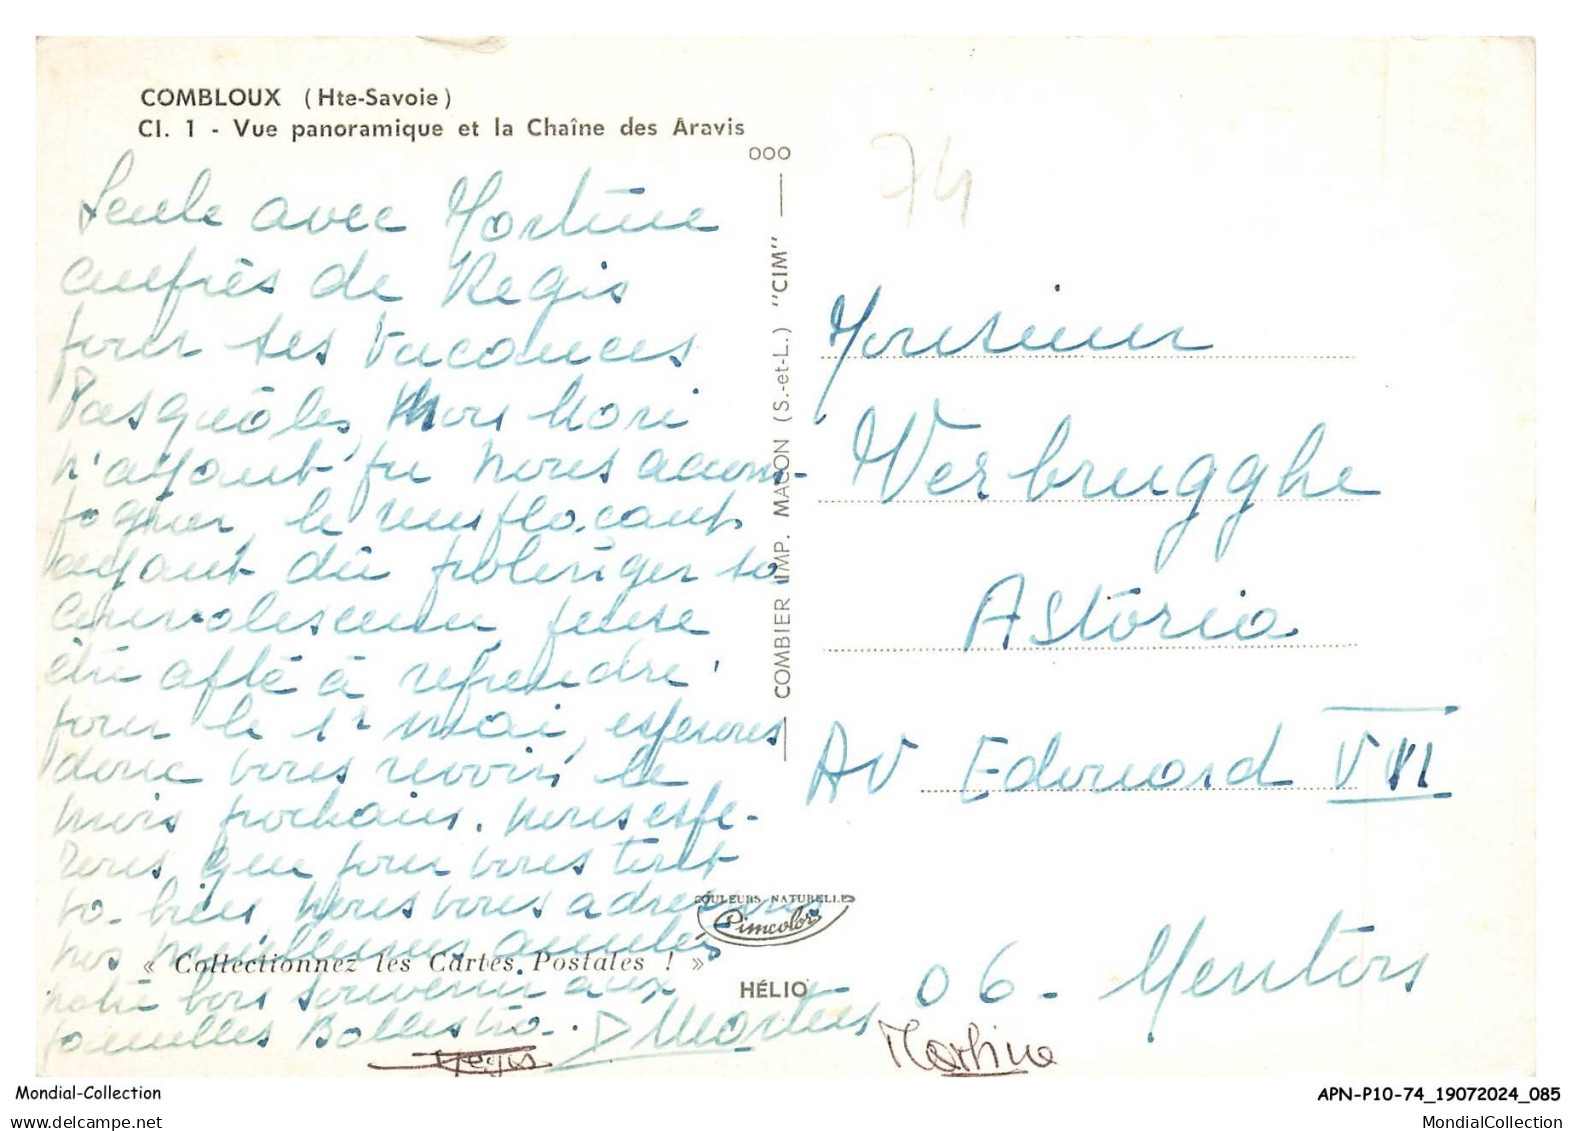 COMBLOUX (Hte-Savoie)
CI. 1 - Vue panoramique et la Chaîne des Aravis
000
74
Seule avec Martine
auprès de Régis
pour ses vacances
Pascales, mon Mari
n'ayant pu nous accom-
pagner, le remplaçant
ayant dû prolonger sa
convalescence pense
être apte à reprendre
pour le 1r mai, espérons
donc vous revoir le
mois prochain. nous espé-
rons que pour vous tout
va bien, nous vous adressons
nos meilleures amitiés
notre bon souvenir aux
familles Ballestra.
Régis
Martine
COMBIER IMP. MACON (S.-et-L.) "CIM"
Monsieur
Verbrugghe
Astoria
Av Edouard VII
06 - Menton
COULEURS NATURELLES
Cimcolor
« Collectionnez les Cartes Postales ! »
HÉLIO
Mondial-Collection
APN-P10-74_19072024_085
mondialcollection.delcampe.net
MondialCollection